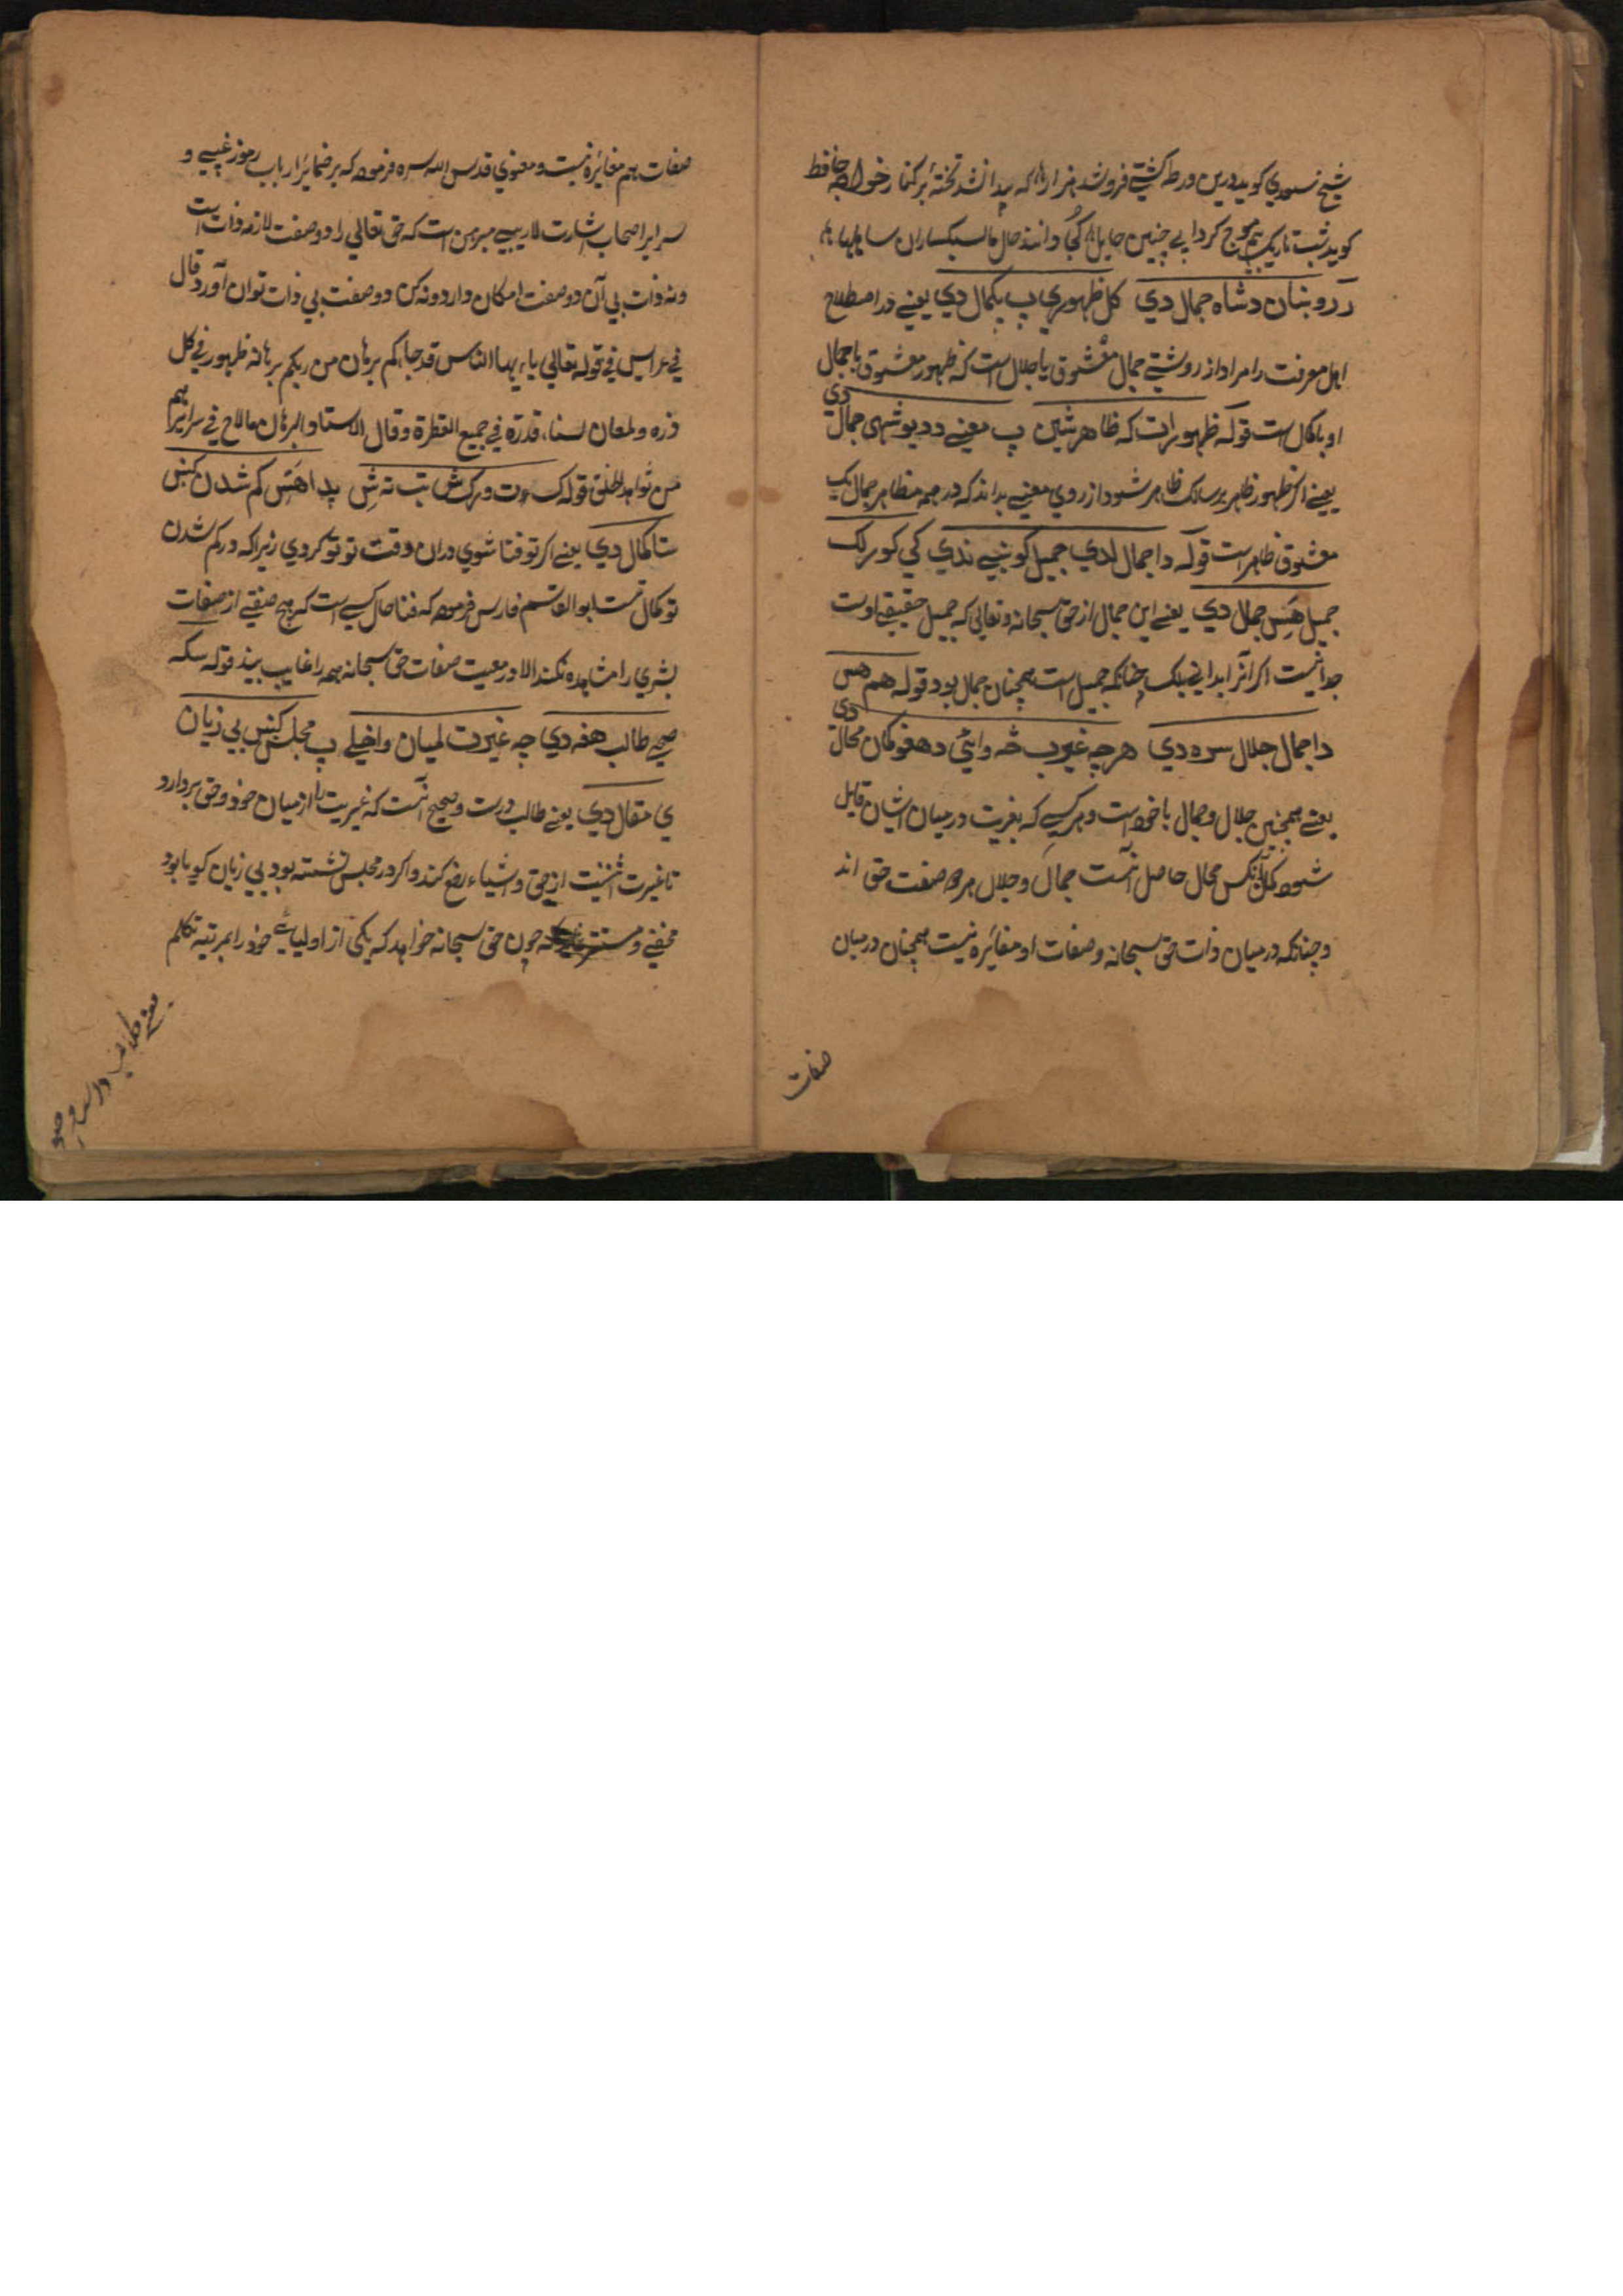 شیخ سعدي کوید درین ورطه کشتي فروشد هزار ها که پیدا نشد تختهٔ بر کنار خواجه حافظ
کوید شب تاریک بیم موج کردابي چنین حایل ها کجا دانند حال ما سبکساران ساحلها ها
رړو بنان د شاه جمال دي کل ظهوري پ پکمال دي یعني در اصطلاح
اهل معرفت را مراد از روشني جمال معشوق با جلال است که ظهور معشوق با جمال
او با کمال است قوله ظهورات که ظاهر شین پ معني د دیو شهی جمال دی
یعني اکر ظهور ظاهر بر سالک ظاهر شود از روي معني بداند که در همه مظاهر جمال یک
معشوق ظاهر است قوله دا جمال لدي جمیل کو بنیي ندي کي کورلک
جمیل هس جمال دي یعني این جمال از حق سبحانه و تعالی که جمیل حقیقي اوست
جدا نیست اکر آنرا بدانی بلک چنانکه جمیل است همچنان جمال بود قوله هم هس
دا جمال جلال سره دي هر چه غیرب څه وایي د هغو کمان محال دی
یعني همچنین جلال و جمال با خود است و هر کسي که بغریت در میان ایشان قایل
شود کمان آنکس محال حاصل آنست جمال و جلال هر دو صفت حق اند
و چنانکه در میان ذات حق سبحانه و صفات او مغائره نیست همچنان در میان
صفات
صفات هم مغائره نیست و معنوي قدس الله سره فرموده که بر ضمائر ارباب رموز غیبي و
سرایر اصحاب اشارت لاریبي مبرهن است که حق تعالي را دو صفت لازمه ذات است
و نه ذات بي آن دو صفت امکان دارد و نه کن دو صفت بي ذات توان آورد قال
في عرایس في قوله تعالي یا ایها الناس قد جاءکم برهان من ربکم برهانه ظهور في کل
ذره و لمعان لسناء قدرة في جمیع الفطرة و قال الاستاد البرهان ما لاح في سرایرهم
من شواهد الحق قوله ک وت ورک ش تب ته ش پدا هس کم شدن کښ
ستا کمال دي یعني اکر تو فنا شوي دران وقت تو تو کردي زیرا که در کم شدن
تو کمال تست ابو القاسم فارس فرموده که فنا حال کسي است که هیچ صفتي از صفات
بشري را مشاهده نکند الا در معیت صفات حق سبحانه همه را غایب بیند قوله سکه
صحیح طالب هغه دي چه غیرت لمیان واخیلي پ مجلس کښ بي زیان
ي مقال دي یعني طالب درست و صحیح آنست که غیریت را از میان خود و حق بردارد
تا غیرت اثنیت از حق و اشیاء رفع کند و اکر در مجلس نشسته بود بي زیان کویا بود
مخفي و مستتر که چون حق سبحانه خواهد که یکی از اولیاء خود را بمرتبه تکلم